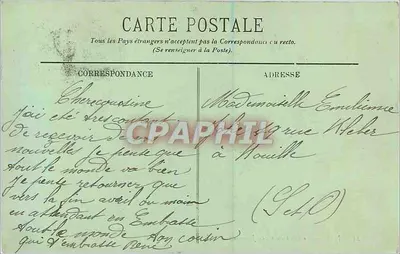 CARTE POSTALE
Tous les Pays étrangers n'acceptent pas la Correspondance au recto.
(Se renseigner à la Poste).
CORRESPONDANCE
Cherecousine
j'ai été très content
de recevoir de
nouvelles je pense que
tout le monde va bien
Je pense retourner que
vers la fin avril ou main
en attendant en Embrasse
tout le monde ton cousin
qui t'embrasse René
ADRESSE
Mademoiselle Emilienne
rue Weber
à Houille
(S et O)
CPAPHIL